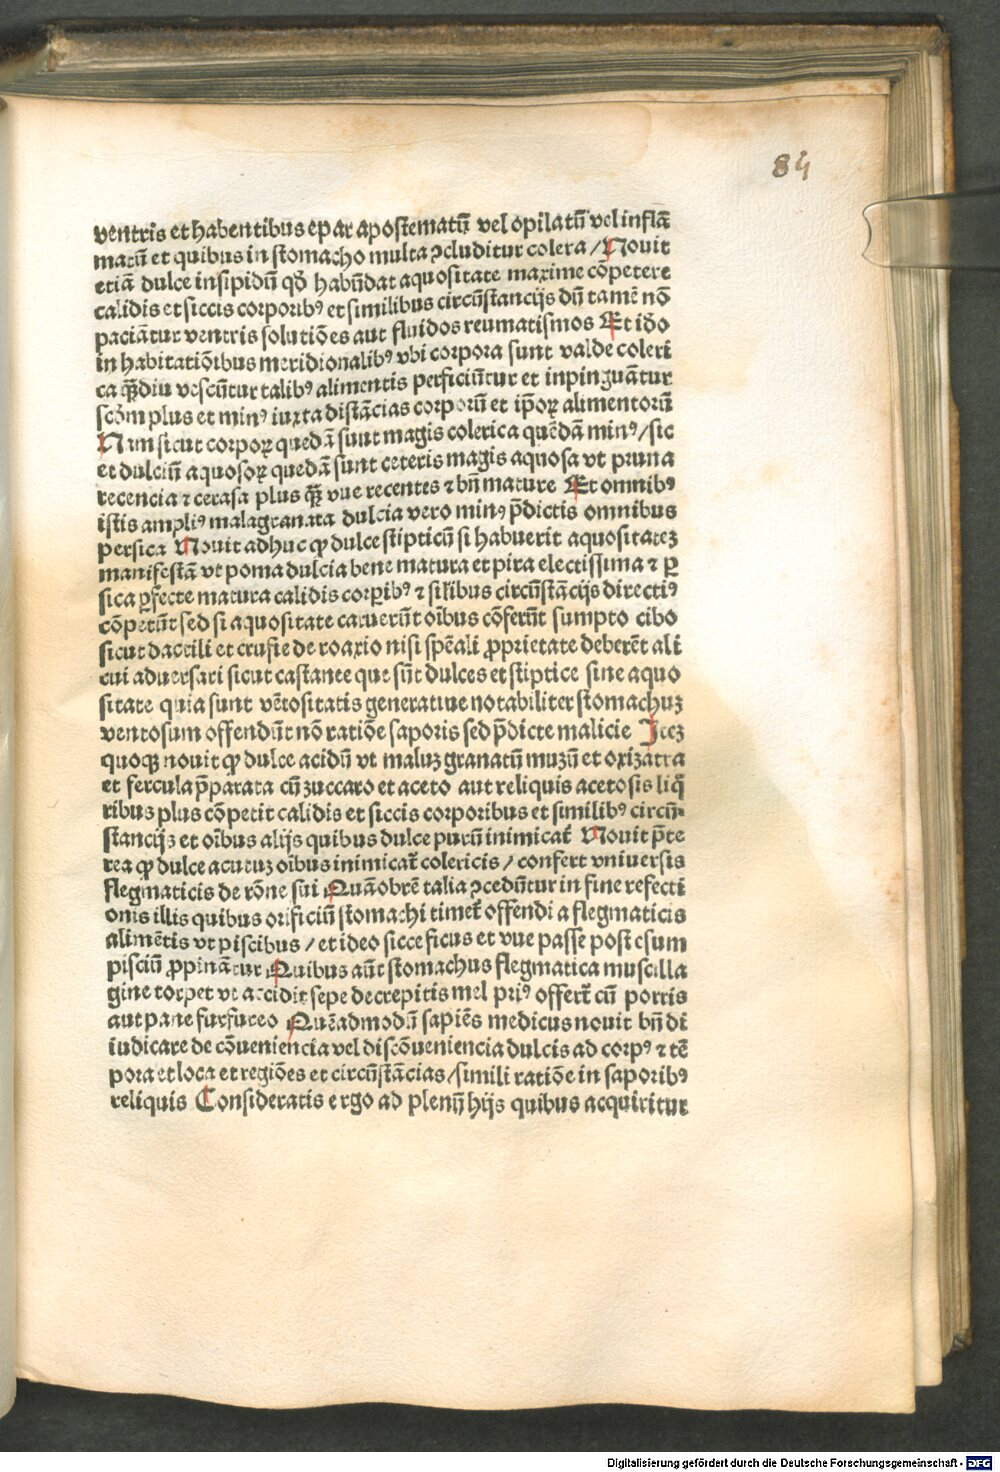 84
ventris et habentibus epar apostematū vel opilatū vel inflā
matū et quibus in stomacho multa ↄcluditur colera / Nouit
etiā dulce insipidū qd̄ habūdat aquositate maxime cōpetere
calidis et siccis corporibꝰ et similibus circūstancijs dū tamē nō
paciātur ventris solutiōes aut fluidos reumatismos Et idō
in habitatiōibus meridionalibꝰ vbi corpora sunt valde coleri
ca qͣ̄diu vescūtur talibꝰ alimentis perficiūtur et inpinguātur
scd̄m plus et minꝰ iuxta distācias corporū et ip̄oꝝ alimentorū
Nam sicut corpoꝝ quedā sunt magis colerica quēdā minꝰ / sic
et dulciū aquosoꝝ quedā sunt ceteris magis aquosa vt pruna
recencia ⁊ cerasa plus qͣ̄ vue recentes ⁊ bn̄ mature Et omnibꝰ
istis ampliꝰ malagranata dulcia vero minꝰ p̄dictis omnibus
persica Nouit adhuc ꝙ dulce stipticū si habuerit aquositatez
manifestā vt poma dulcia bene matura et pira electissima ⁊ ꝑ
sica ꝑfecte matura calidis corꝑibꝰ ⁊ sil̄ibus circūstācijs directiꝰ
cōpetūt sed si aquositate caruerūt oībus cōferūt sumpto cibo
sicut dactili et crustie de roaxio nisi spēali ꝓprietate deberēt ali
cui aduersari sicut castanee que sūt dulces et stiptice sine aquo
sitate quia sunt vētositatis generatiue notabiliter stomachuz
ventosum offendūt nō ratiōe saporis sed p̄dicte malicie Itez
quoqꝫ nouit ꝙ dulce acidū vt maluz granatū muzū et oxizatra
et fercula p̄parata cū zuccaro et aceto aut reliquis acetosis liq̄
ribus plus cōpetit calidis et siccis corporibus et similibꝰ circū-
stancijs et oībus alijs quibus dulce purū inimicat᷑ Nouit p̄te
rea ꝙ dulce acutuz oībus inimicat᷑ colericis / confert vniuersis
flegmaticis de rōne sui Quāobrē talia ↄcedūtur in fine refecti
onis illis quibus orificiū stomachi timet᷑ offendi a flegmaticis
alimētis vt piscibus / et ideo sicce ficus et vue passe post esum
pisciū ꝓpinātur Quibus aūt stomachus flegmatica muscilla
gine torpet vt accidit sepe decrepitis mel priꝰ offert᷑ cū porris
aut pane furfureo Quēadmodū sapiēs medicus nouit bn̄ di
iudicare de cōueniencia vel discōueniencia dulcis ad corpꝰ ⁊ tē
pora et loca et regiōes et circūstācias / simili ratiōe in saporibꝰ
reliquis Consideratis ergo ad plenū hijs quibus acquiritur
Digitalisierung gefördert durch die Deutsche Forschungsgemeinschaft - DFG